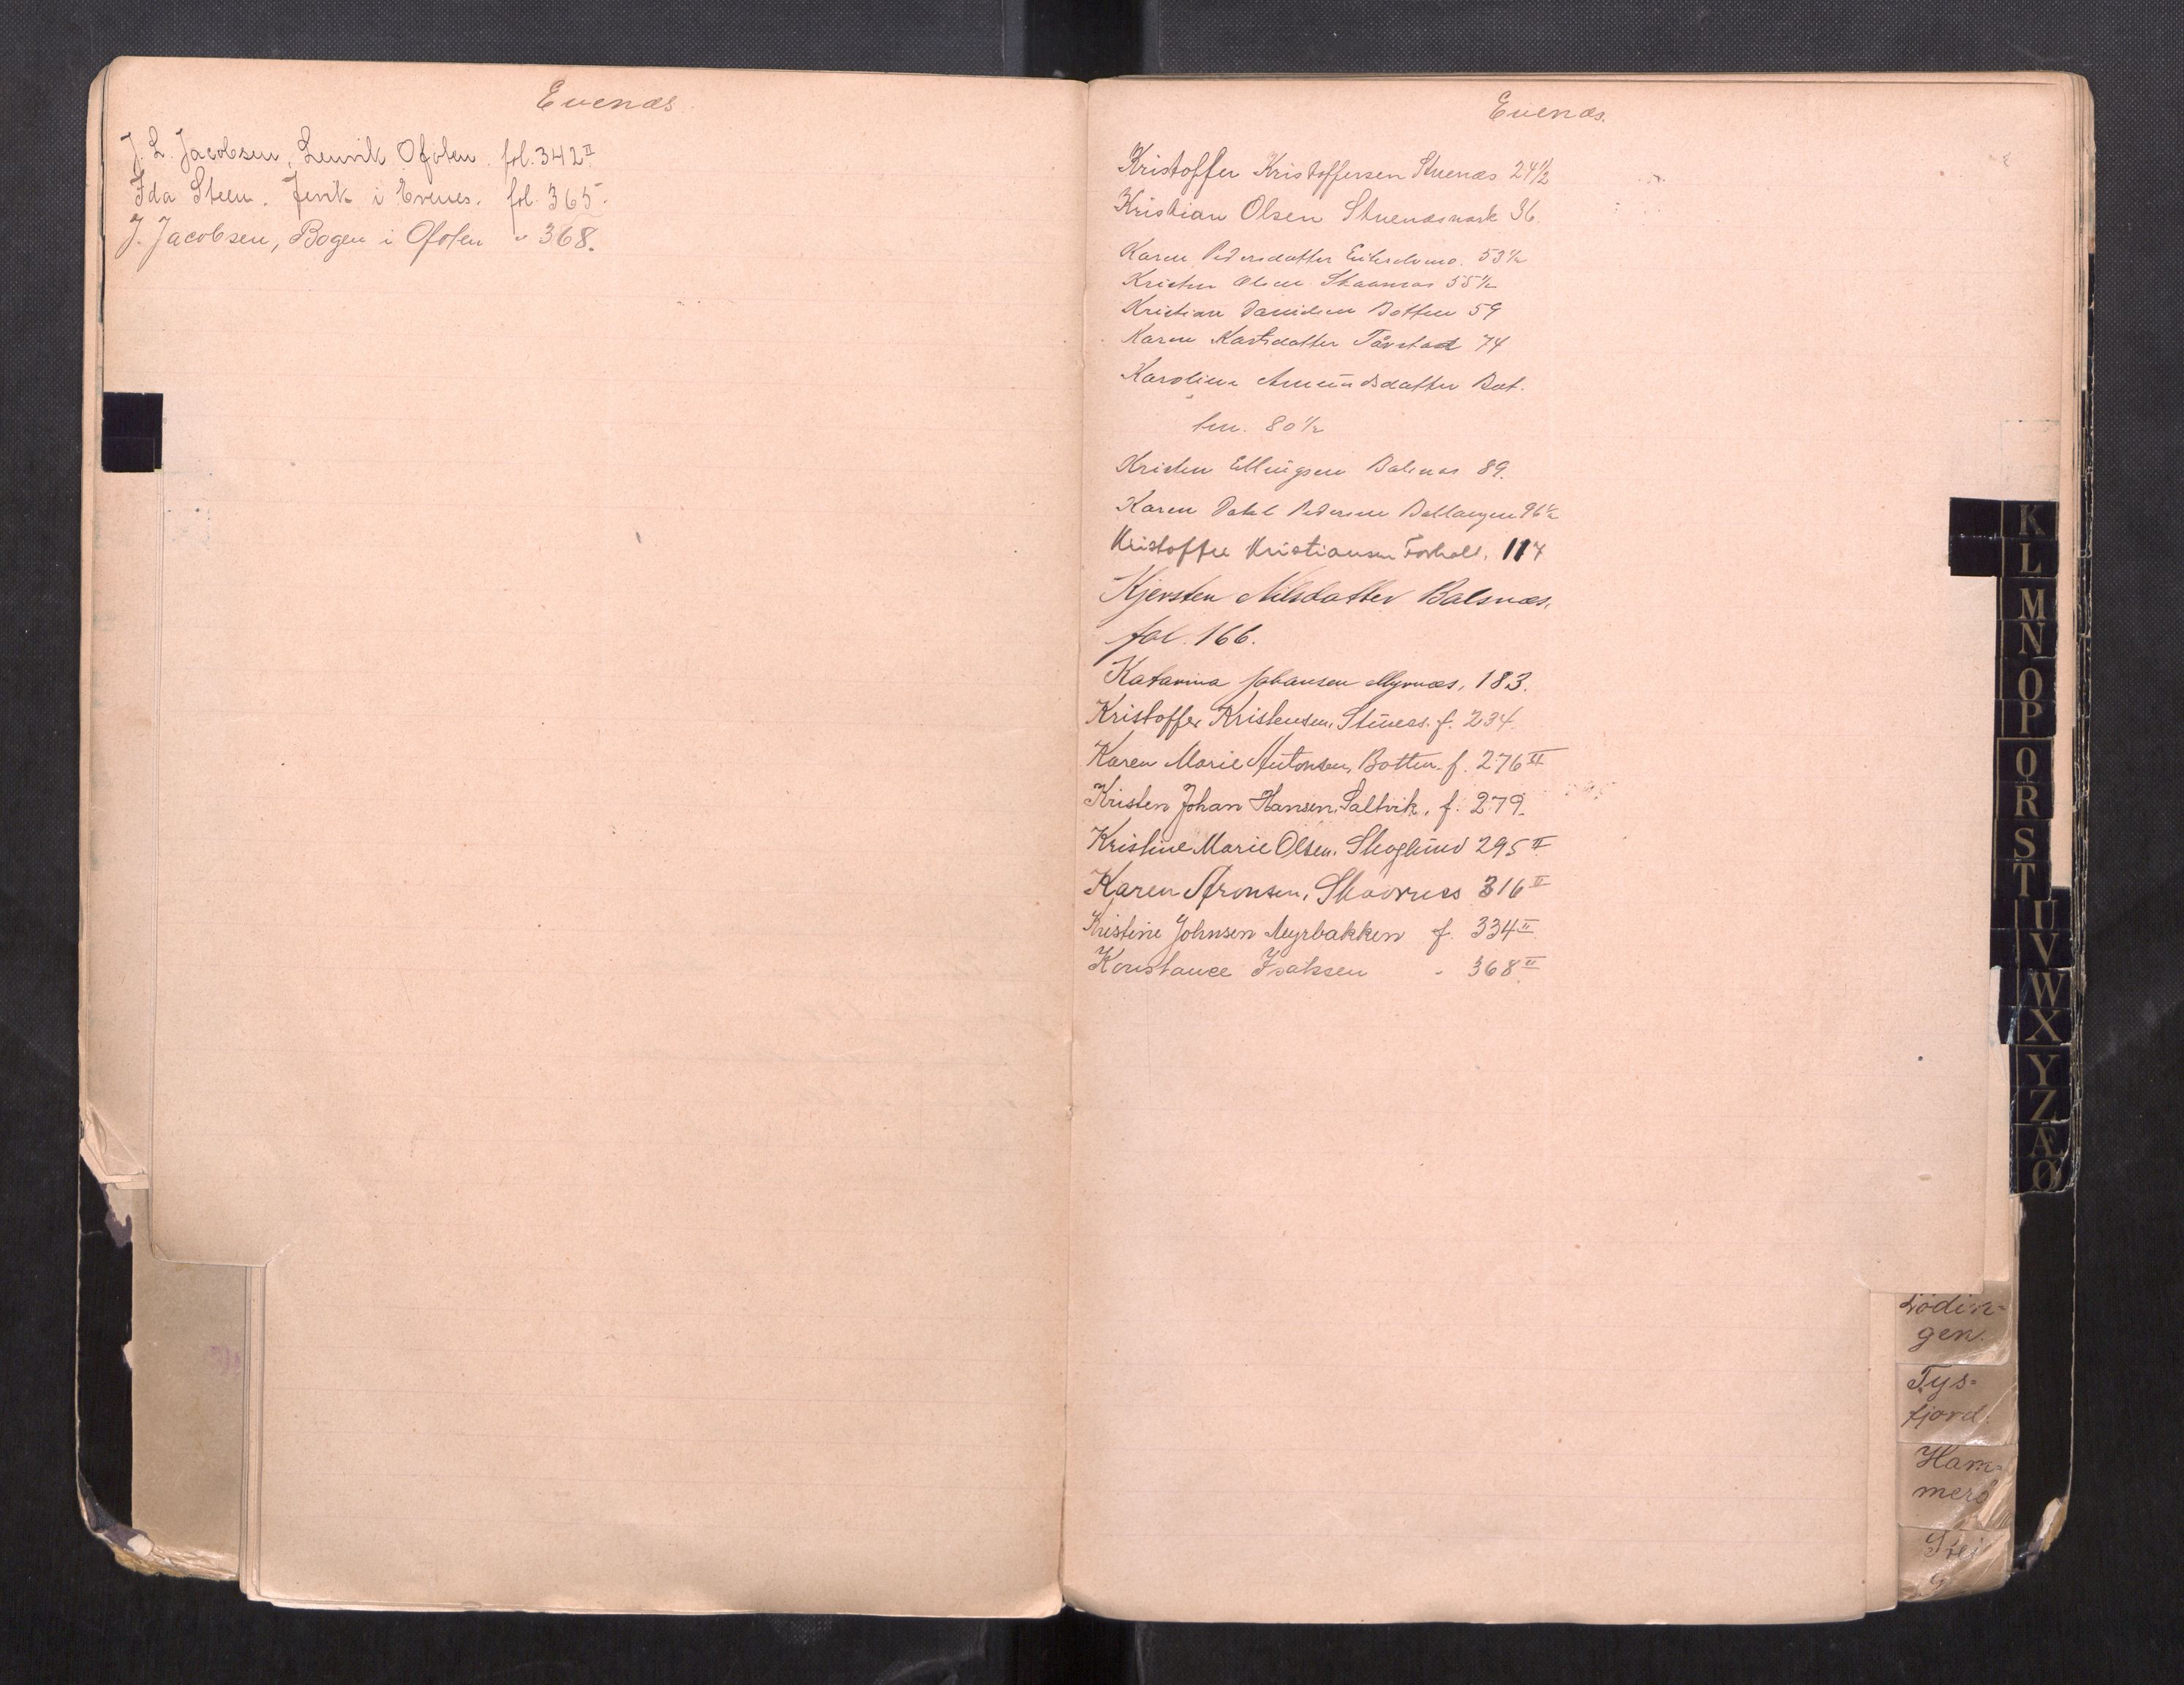 Evenæs.
J. L. Jacobsen, Lenvik Ofoten fol. 342 II
Ida Steen. i Evenes. fol. 365.
J. Jacobsen, Bogen i Ofoten " 368.
Evenæs.
Kristoffer Kristoffersen Stuenæs 24 1/2
Kristian Olsen Stuenæsmark 36.
Karen Pedersdatter 53 1/2
Kristen Olsen 55 1/2
Kristian Danielsen Botten 59
Karen Karlsdatter Tårstad 74
Karoline Amundsdatter Bot-
ten. 80 1/2
Kristen Ellingsen Balsnæs 89.
Karen Dahl Pedersen Ballangen 96 1/2
Kristoffer Kristiansen 117
Kjersten Nilsdatter Balsnæs.
fol. 166.
Katarina Johansen Myrnæs, 183.
Kristoffer Kristensen, Stunes. f. 234.
Karen Marie Antonsen, Botten. f. 276 II
Kristen Johan Hansen, Saltvik, f. 279.
Kristine Marie Olsen. Skoglund 295 II
Karen Aronsen, 316 II
Kristine Johnsen Myrbakken f. 334 II
Konstance Isaksen - 368 II
K
L
M
N
O
P
Q
R
S
T
U
V
W
X
Y
Z
Æ
Ø
Lödin-
gen.
Tys-
fjord.
Ham-
merö